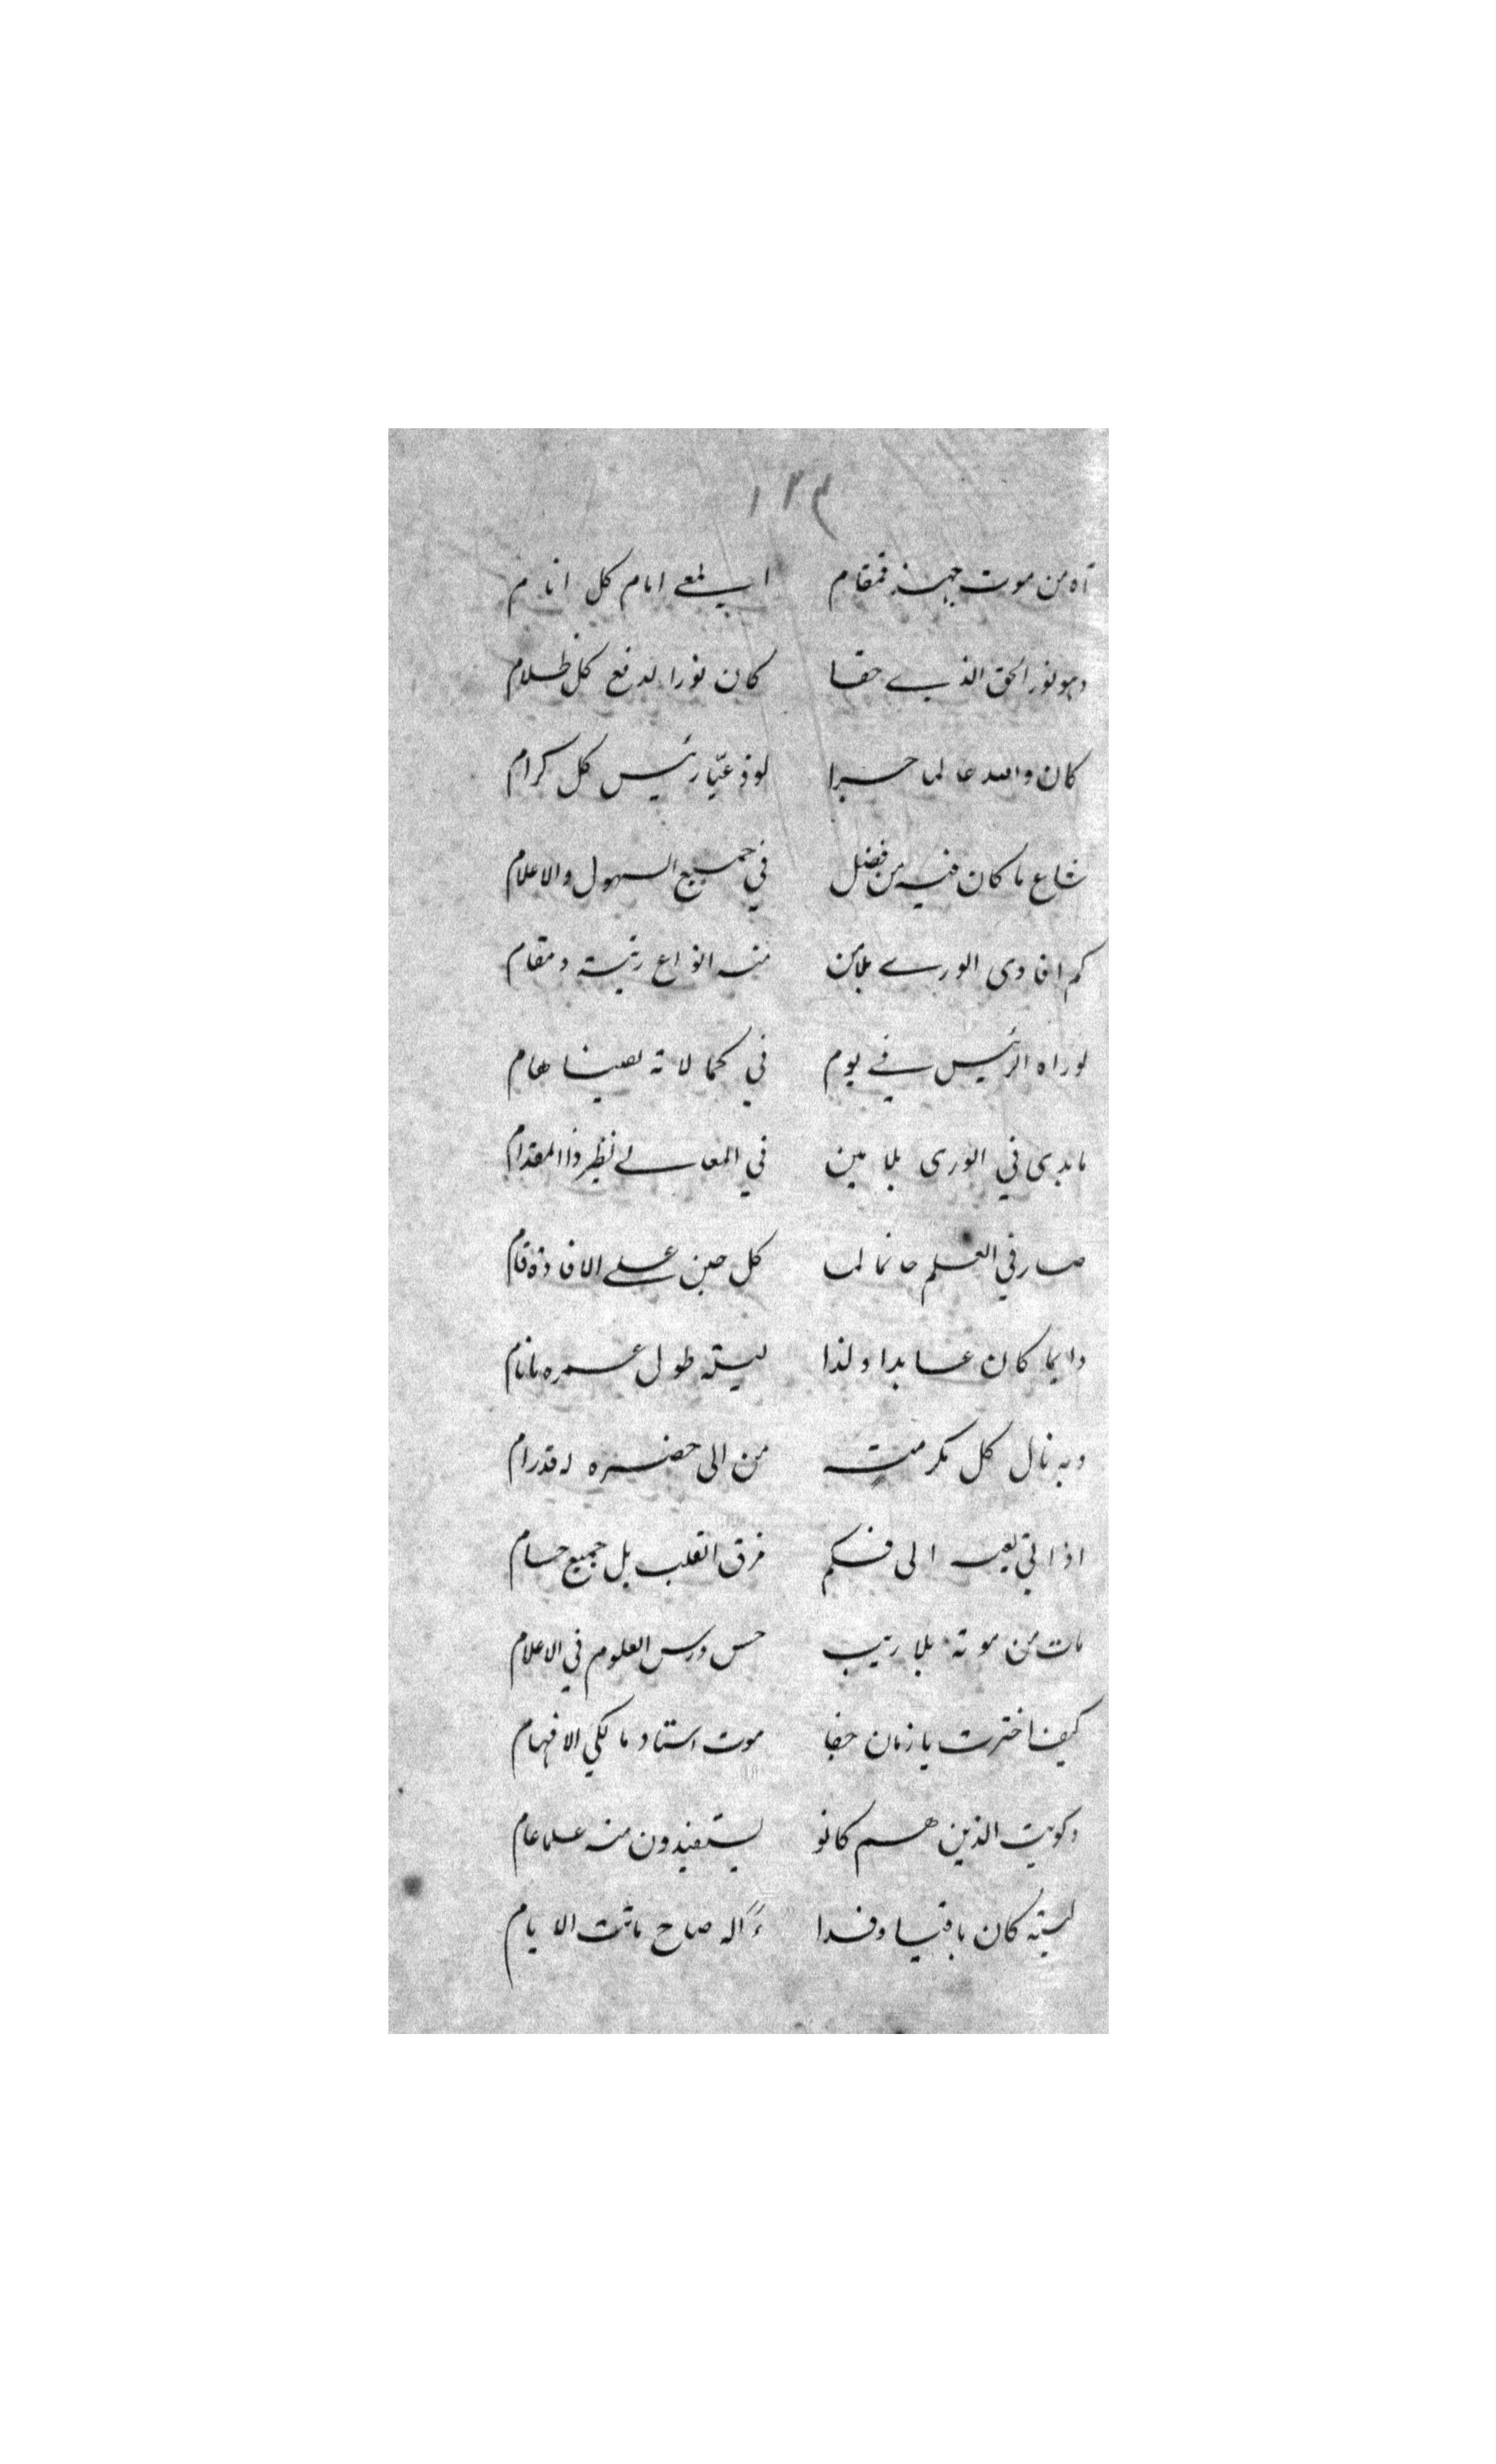 ١٢٣
آه من موت جهبذ قمقام المعي امام كل انام
وهو نور الحق الذي حقا كان نورا لدفع كل ظلام
كان والله عالما حبرا لوذعيّا رئيس كل كرام
شاع ما كان فيه من فضل في جميع السهول والاعلام
كم افادى الورى بلا من منه انواع رتبة ومقام
لو راه الرئيس في يوم في كمالاته يصينا هام
ما بدى في الورى بلا مين في المعالي نظير ذا المقدام
صار في العلم حاتما لما كل حين على الافادة قام
دايما كان عابدا ولذا ليته طول عمره ما نام
وبه نال كل مكرمت من الى حضره له قد رام
اذ اتى الى فسكم مزق القلب بل جميع حسام
مات من موته بلا ريب حس درس العلوم في الاعلام
كيف اخترت يا زمان جفا موت استاد مالكي الافهام
وكويت الذين هم كانو يستفيدون منه علما عام
ليته كان باقيا وفدا له صاح ما شت الايام